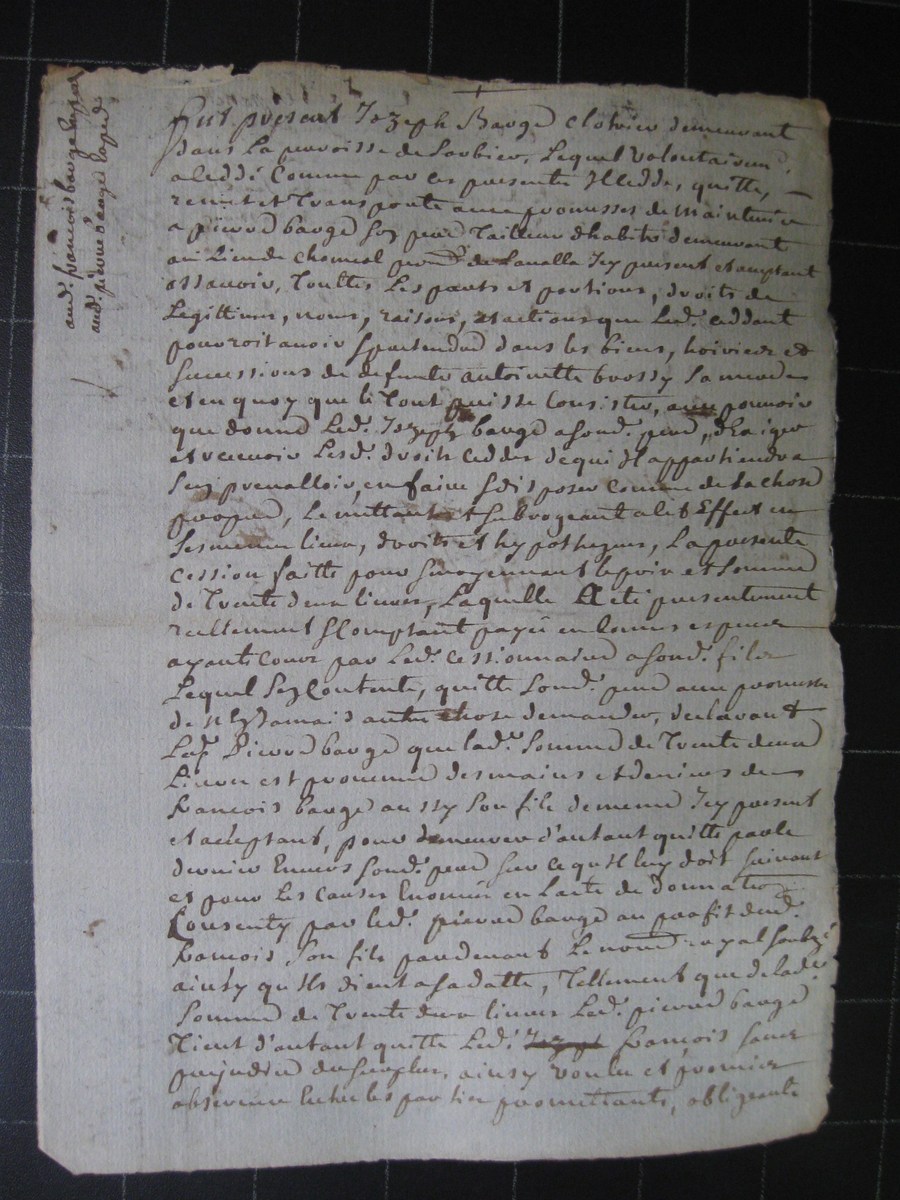 aud. francois barge
aud. pierre barge
Fut présent Jozeph Barge cloutrier demeurant
dans la parroisse de Sorbier, Lequel volontairem.
a ceddé comme par ces presentes Il cedde, quitte,
remet et transporte avec promesses de maintenir
a pierre barge son pere Tailleur dhabits demeurant
au Lieu de parr. de Lavalla Jcy present et acceptant
assavoir, Touttes Les parts et portions, droits de
Legittime, noms, raisons, et actions que Led. ceddant
pourroit avoir & prettendre dans les biens, hoiries et
successions de defunte antoinette brossy Sa mere
et en quoy que le tout puisse consister, avec pouvoir
que donne Led. Jozeph barge a sond. pere, dExiger
et recevoir Lesd. droits ceddes de qui Il appartiendra
sen prevalloir, en faire & disposer comme de sa chose
propre, Le mettant et subrogeant a cet Effect en
ses meme lieux, droits et hypotheques, La presente
cession faitte pour & moyennant le prix et somme
de Trente deux livres, Laquelle a eté presentement
reellement & comptant payée en bonnes especes
ayants cours par Led. cessionnaire a sond. fils
Lequel sen contente, quitte sond. pere avec promesse
de nEn Jamais autre chose demander, declarant
Led. Pierre barge que lad. somme de Trente deux
Livres est provenue des mains et deniers de
francois barge aussy son fils demeure Jcy present
et acceptant, pour demeurer d'autant quitte par le
dernier Envers sond. pere sur ce quIl luy doit suivant
et pour les causes Enoncées en Lacte de donnation
Consenty par led. pierre barge au profit dud.
francois son fils pardevant Le notre royal soubz.
ainsy quIls dient a sa datte, Tellement que de lad.
somme de Trente deux livres Led. pierre barge
Tient d'autant quitte Led. francois sans
prejudice du surplus, ainsy voulu et promis
observer lesd. parties promettants, obligeants